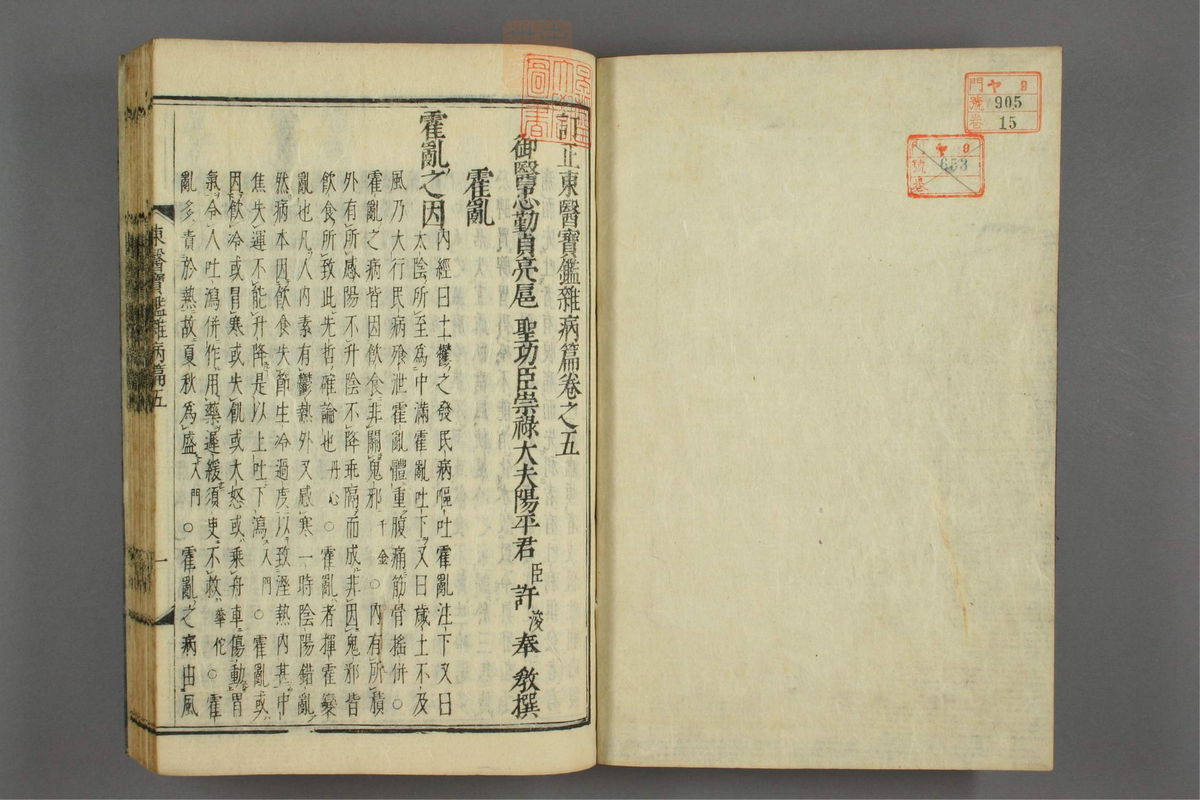 門 ヤ 9
號 905
卷 15
門 ヤ 9
號 653
卷
圖書
訂正東醫寶鑑雜病篇卷之五
御醫忠勤貞亮扈 聖功臣崇祿大夫陽平君 臣 許 浚 奉 敎撰
霍亂
霍亂之因 內經曰土鬱之發民病嘔吐霍亂注下又曰
太陰所至爲中滿霍亂吐下又曰歲土不及
風乃大行民病飱泄霍亂體重腹痛筋骨搖併○
霍亂之病皆因飮食非關鬼邪千金○內有所積
外有所感陽不升陰不降乖隔而成非因鬼邪皆
飮食所致此先哲確論也丹心○霍亂者揮霍變
亂也凡人內素有鬱熱外又感寒一時陰陽錯亂
然病本因飮食失節生冷過度以致溼熱內甚中
焦失運不能升降是以上吐下瀉入門○霍亂或
因飮冷或冒寒或失飢或大怒或乘舟車傷動胃
氣令人吐瀉併作用藥遲緩須臾不救華佗○霍
亂多責於熱故夏秋爲盛入門○霍亂之病由風
東醫寶鑑雜病篇五
一